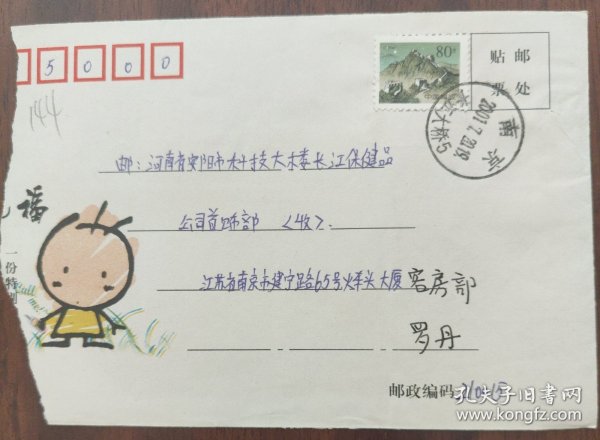 5 0 0 0
144
80分
贴邮
票处
南京
2001.7.
长江大桥5
邮：河南省安阳市科技大楼长江保健品
公司首饰部〈收〉.
福
一份特别
Call me!
江苏省南京市建宁路65号火车头大厦 客房部
罗丹
邮政编码 210015
孔夫子旧书网
www.kongfz.com